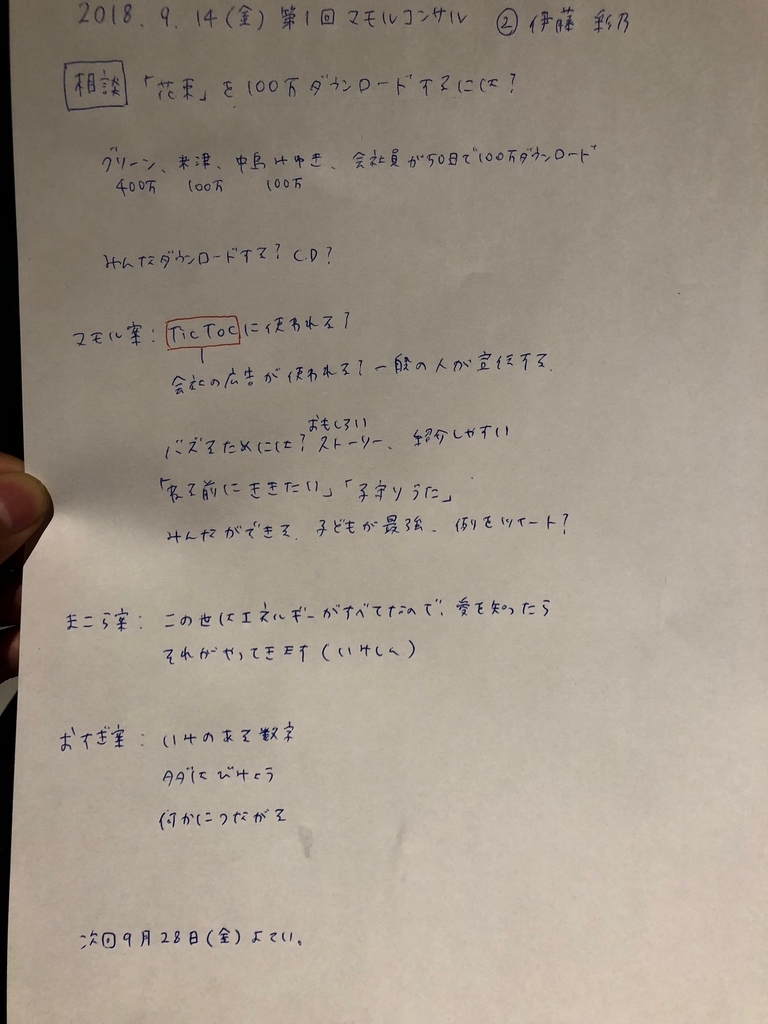 2018. 9. 14(金) 第1回 マモルコンサル ② 伊藤 彩乃
相談 「花束」を100万ダウンロードするには?
グリーン、米津、中島みゆき、会社員が50日で100万ダウンロード
400万 100万 100万
みんなダウンロードする? CD?
マモル案: TicTocに使われる?
会社の広告が使われる? 一般の人が宣伝する.
おもしろい
バズるためには? ストーリー、紹介しやすい
「寝る前にききたい」「子守りうた」
みんなができる. 子どもが最強. 例をツイート?
まこら案: この世はエネルギーがすべてなので、愛を知ったら
それがやってきます(いけしん)
おすぎ案: いみのある数字
タダは びみょう
何かにつながる
次回9月28日(金)よてい。